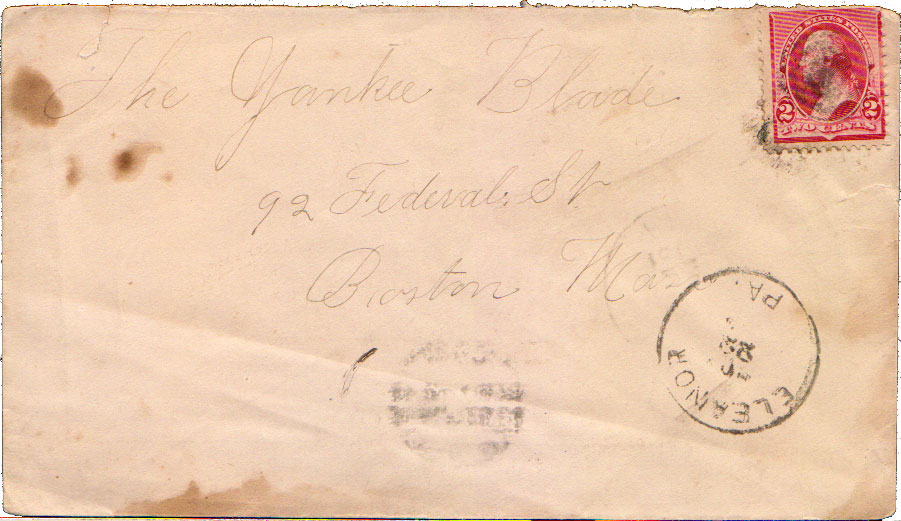 UNITED STATES POSTAGE
2 2
TWO CENTS
The Yankee Blade
92 Federal St
Boston Mass
ELEANOR
22
PA.